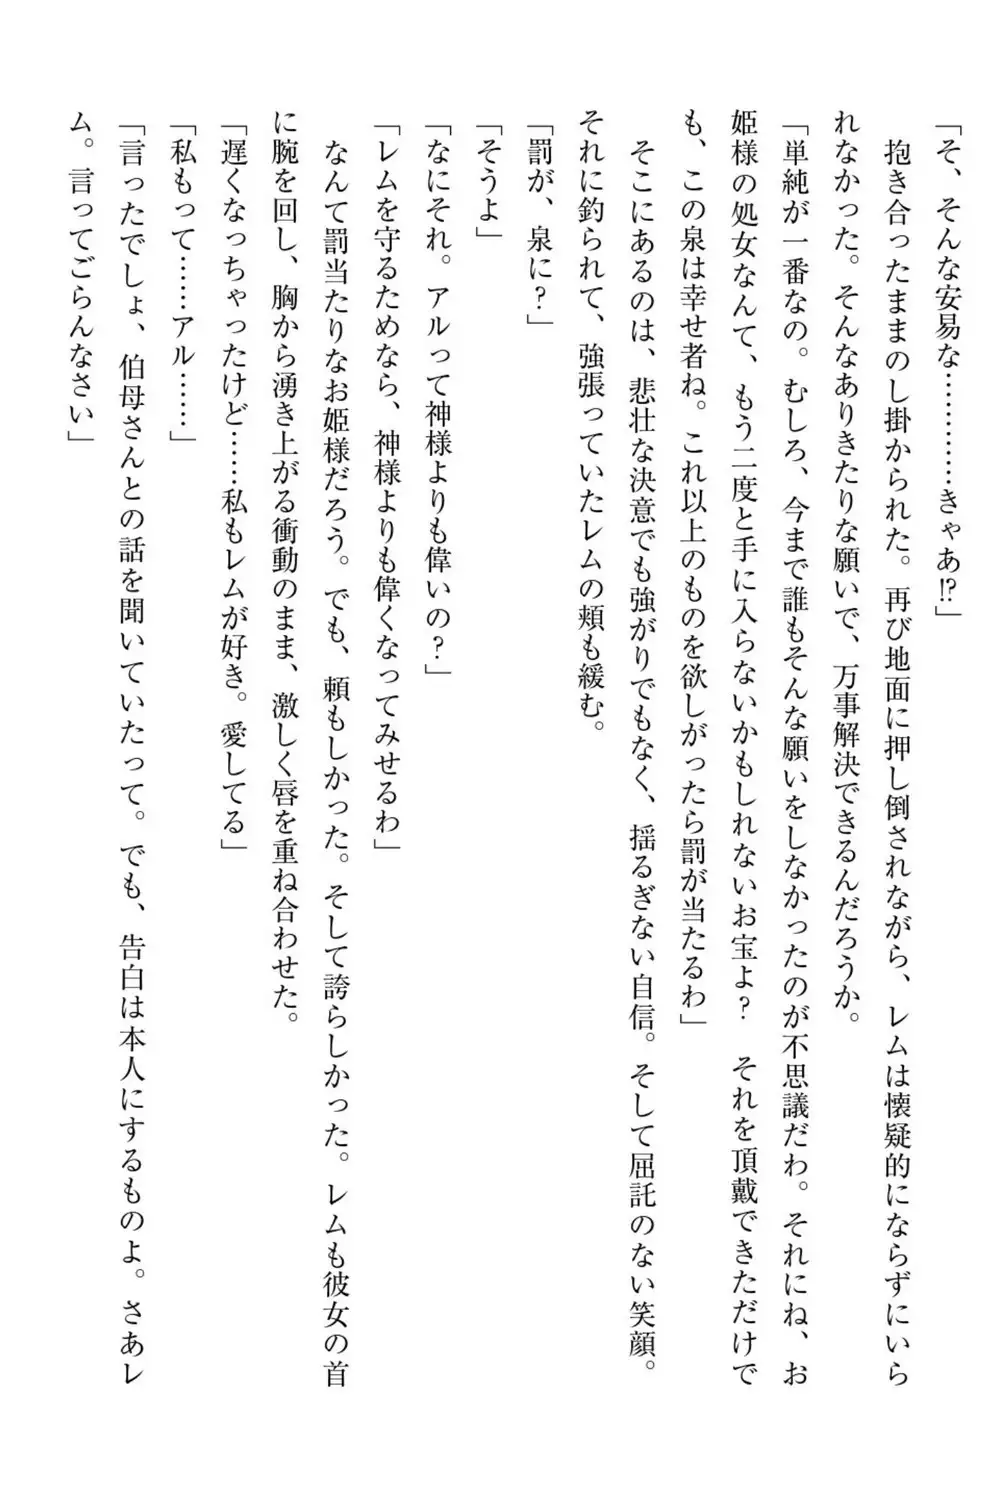 「そ、そんな安易な…………きゃあ!?」
　抱き合ったままのし掛かられた。再び地面に押し倒されながら、レムは懐疑的にならずにいら
れなかった。そんなありきたりな願いで、万事解決できるんだろうか。
「単純が一番なの。むしろ、今まで誰もそんな願いをしなかったのが不思議だわ。それにね、お
姫様の処女なんて、もう二度と手に入らないかもしれないお宝よ?　それを頂戴できただけで
も、この泉は幸せ者ね。これ以上のものを欲しがったら罰が当たるわ」
　そこにあるのは、悲壮な決意でも強がりでもなく、揺るぎない自信。そして屈託のない笑顔。
それに釣られて、強張っていたレムの頬も緩む。
「罰が、泉に?」
「そうよ」
「なにそれ。アルって神様よりも偉いの?」
「レムを守るためなら、神様よりも偉くなってみせるわ」
　なんて罰当たりなお姫様だろう。でも、頼もしかった。そして誇らしかった。レムも彼女の首
に腕を回し、胸から湧き上がる衝動のまま、激しく唇を重ね合わせた。
「遅くなっちゃったけど……私もレムが好き。愛してる」
「私もって……アル……」
「言ったでしょ、伯母さんとの話を聞いていたって。でも、告白は本人にするものよ。さあレ
ム。言ってごらんなさい」